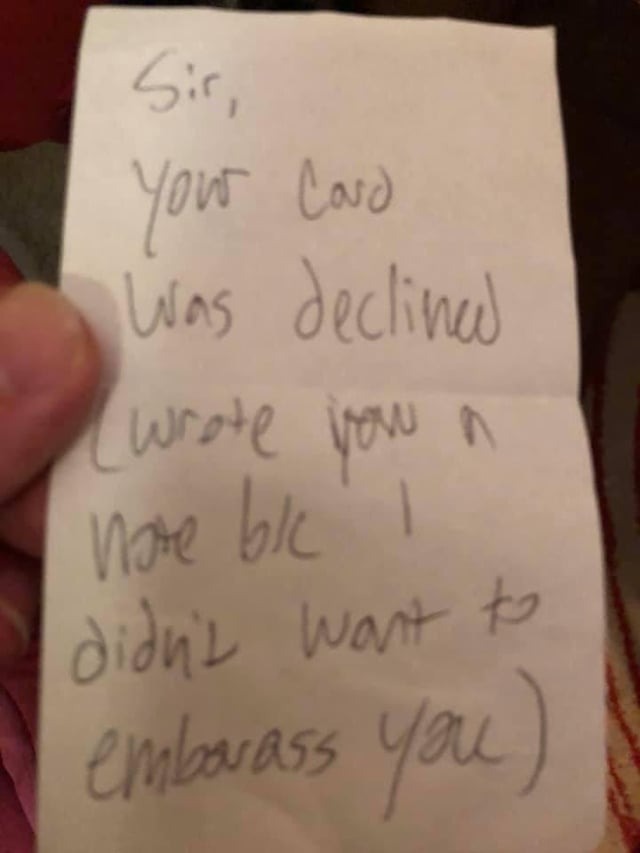 Sir,
Your Card
Was declined
(wrote you a
note b/c I
didn't want to
embarass you)